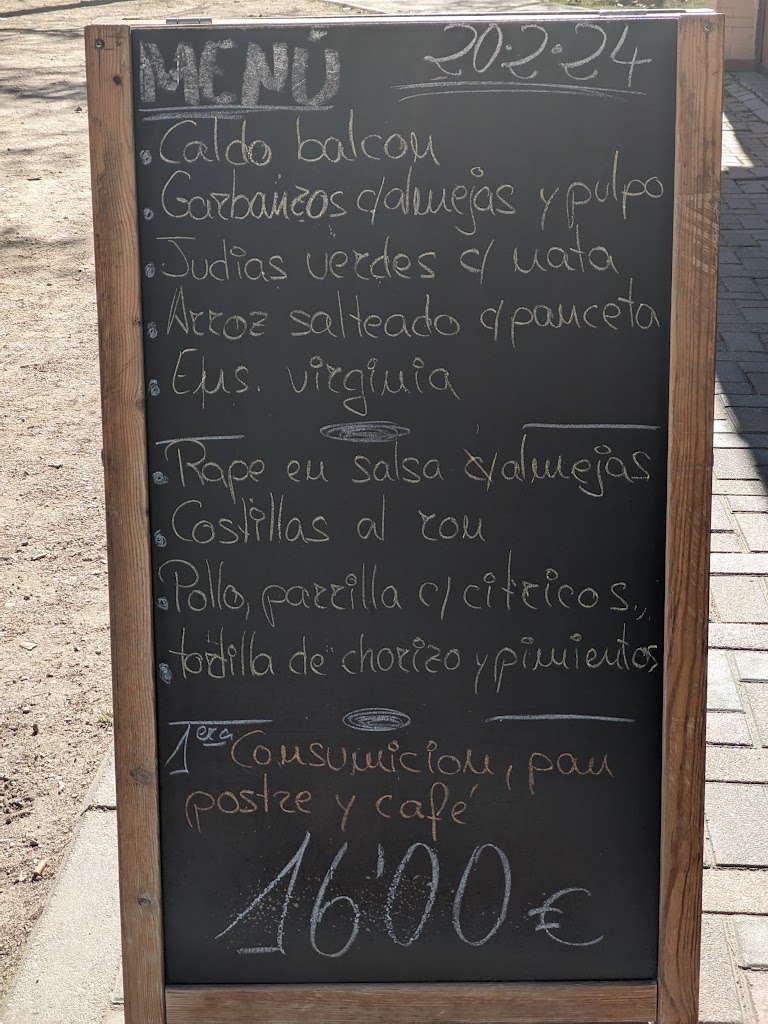 MENÚ 20·2·24
Caldo balcon
Garbanzos c/almejas y pulpo
Judias verdes c/ nata
Arroz salteado c/panceta
Ens. virginia
Rape en salsa c/almejas
Costillas al ron
Pollo, parrilla c/citricos.,
tortilla de chorizo y pimientos,
1era Consumicion, pan
postre y café
16'00€